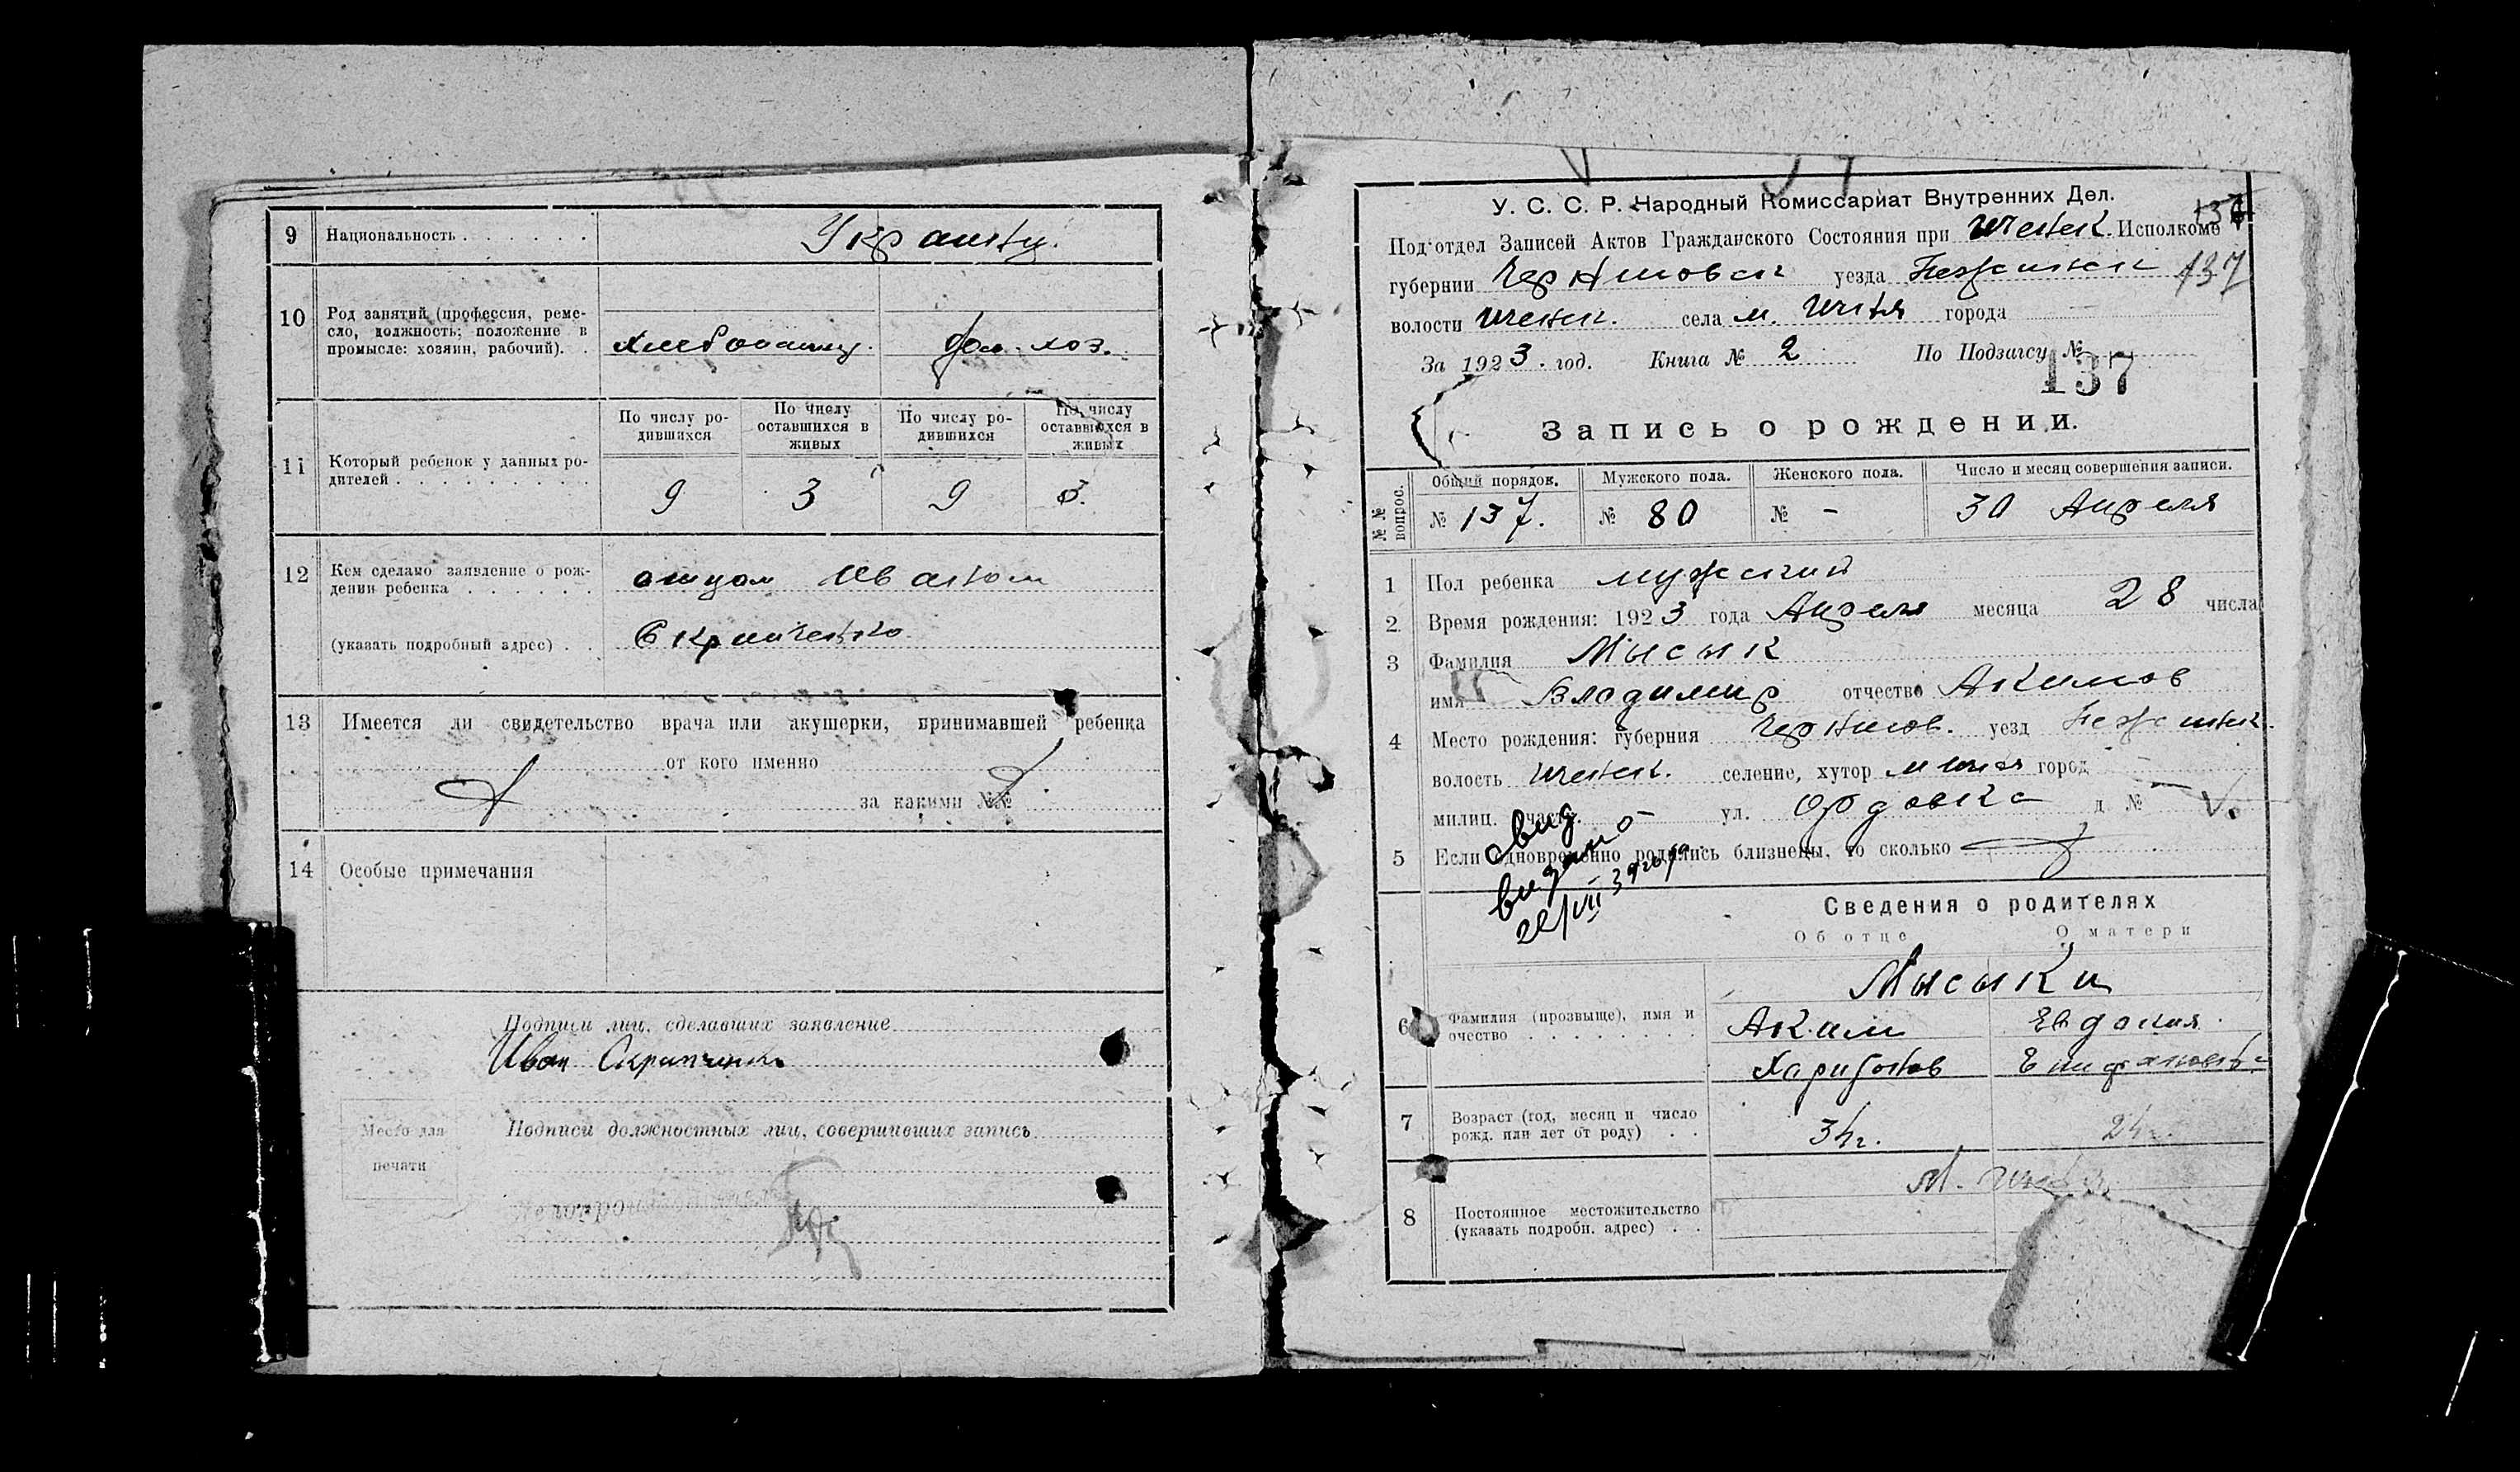 9 Национальность Украинц.
10 Род занятий (профессия, реме-
сло, должность; положение в
промысле: хозяин, рабочий). Хлебопашец. Дом. хоз.
11 Который ребенок у данных ро-
дителей
По числу ро-
дившихся
По числу
оставшихся в
живых
По числу ро-
дившихся
По числу
оставшихся в
живых
9 3 9 3.
12 Кем сделано заявление о рож-
дении ребенка отцом Иваном
(указать подробный адрес) Скрипченко
13 Имеется ли свидетельство врача или акушерки, принимавшей ребенка
от кого именно
за какими №№
14 Особые примечания
Подписи лиц, сделавших заявление
Иван Скрипченко
Подписи должностных лиц, совершивших запись
Место для
печати
У. С. С. Р. Народный Комиссариат Внутренних Дел.
Под'отдел Записей Актов Гражданского Состояния при Исполкоме
137
губернии Черниговск уезда Нежинск 137
волости села м. города
За 1923. год. Книга № 2 По Подзагсу №
137
Запись о рождении.
№№ вопрос.
Общий порядок. Мужского пола. Женского пола. Число и месяц совершения записи.
№ 137. № 80 № - 30 Апреля
1 Пол ребенка мужский
2 Время рождения: 1923 года Апреля месяца 28 числа
3 Фамилия Мысык
имя Владимир отчество Акимов
4 Место рождения: губерния Чернигов. уезд Нежинск.
волость селение, хутор город
милиц. часть ул. д №
5 Если одновременно родились близнецы, то сколько
свид
выдано
22/VII 39 года
Сведения о родителях
Об отце О матери
Мысыки
6 Фамилия (прозвыще), имя и
очество
Аким Евдокия.
Харитонов Епифановна
7 Возраст (год, месяц и число
рожд. или лет от роду) 34г. 24г.
8 Постоянное местожительство
(указать подробн. адрес)
М.